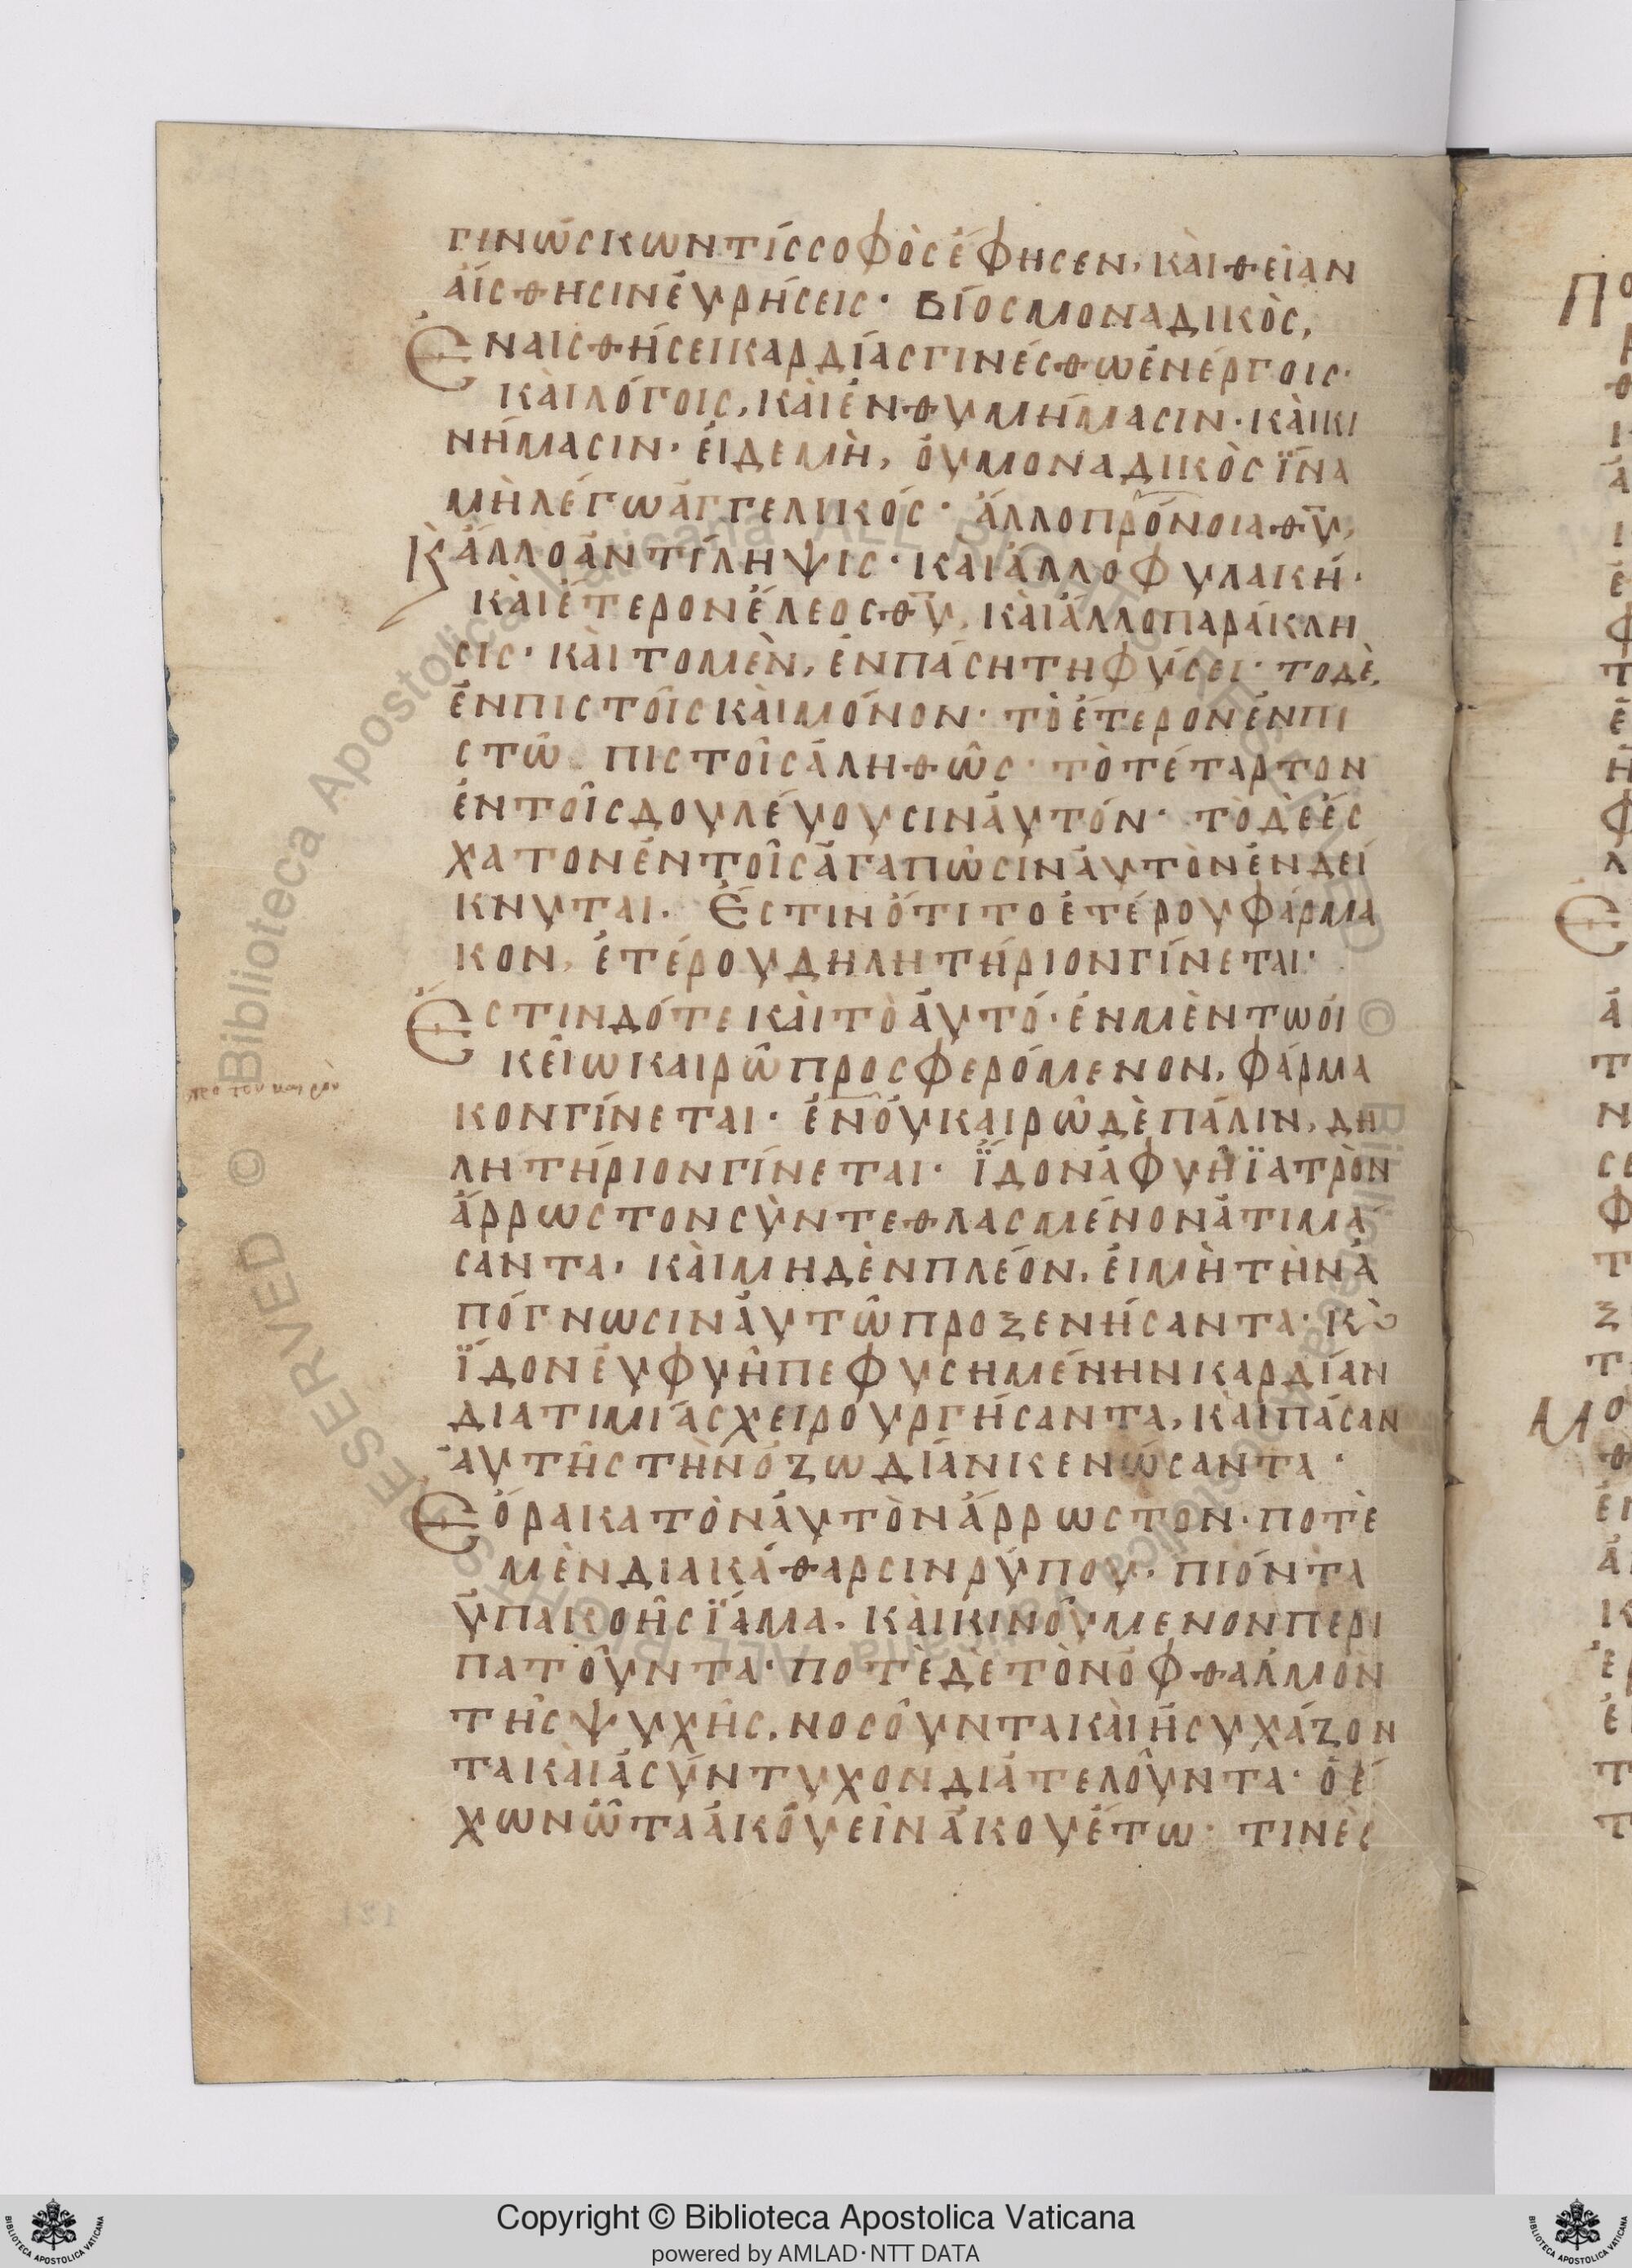 γινώσκων τίς σοφὸς ἔφησεν, κὰι θείαν
ἄισθησιν ἑυρήσεις· βίος μοναδικὸς,
Ἐν αισθήσει καρδίας γινέσθω ἐν ἔργοις·
κὰι λόγοις, κὰι ἐνθυμήμασιν· κὰι κι
νήμασιν· ἐι δε μὴ, ὀυ μοναδικὸς ἵνα
μὴ λέγω ἀγγελικός· ἄλλο πρόνοια θυ,
Κ ἄλλο ἀντίληψις· και ἄλλο φυλακή·
κὰι ἕτερον ἔλεος θυ, κὰι ἄλλο παράκλη
σις· κὰι το μὲν, ἐν πάσητη φύσει· το δὲ,
ἐν πιστοῖς κὰι μόνον· τὸ ἕτερον ἐν πι
στῶ πιστοῖς ἀληθῶς· τὸ τέταρτον
ἐν τοῖς δουλέυουσιν ἀυτόν· τὸ δὲ ἔσ
χατον ἐν τοῖς ἀγαπῶσιν ἀυτὸν ἐνδεί
κνυται. Ἔστιν ὅτι το ἑτέρου φάρμα
κον, ἑτέρου δηλητήριον γίνεται·
Ἔστιν δ ότε κὰι τὸ ἀυτό· ἐν μὲν τω όι
κείω καιρῶ προσφερόμενον, φάρμα
κον γίνεται· ἐν ὀυ καιρῶ δὲ πάλιν, δη
λητήριον γίνεται· ἴδον ἀφυῆ ἰατρὸν
ἄρρωστον σὺντεθλασμένον ἀτιμά
σαντα· κὰι μηδὲν πλέον, ἐι μὴ τὴν ἀ
πόγνωσιν ἀυτῶ προξενήσαντα· κ̀
ἴδον ἐυφυῆ πεφυσημένην καρδίαν
δι ατιμίας χειρουργήσαντα, κὰι πάσαν
ἀυτῆς τὴν ὀζωδίαν κενώσαντα·
Ἑόρακα τὸν ἀυτὸν ἄρρωστον· ποτὲ
μὲν δια κάθαρσιν ρύπου, πιόντα
ὑπακοῆς ἵαμα, κὰι κινόυμενον περι
πατοῦντα· ποτὲ δὲ τὸν ὀφθαλμὸν
τῆς ψυχῆς, νοσοῦντα κὰι ἡσυχάζον
τα κὰι ἀσύντυχον διατελοῦντα· ὁ έ
χων ὦτα ἀκόυειν ἀκουέτω· τινὲς